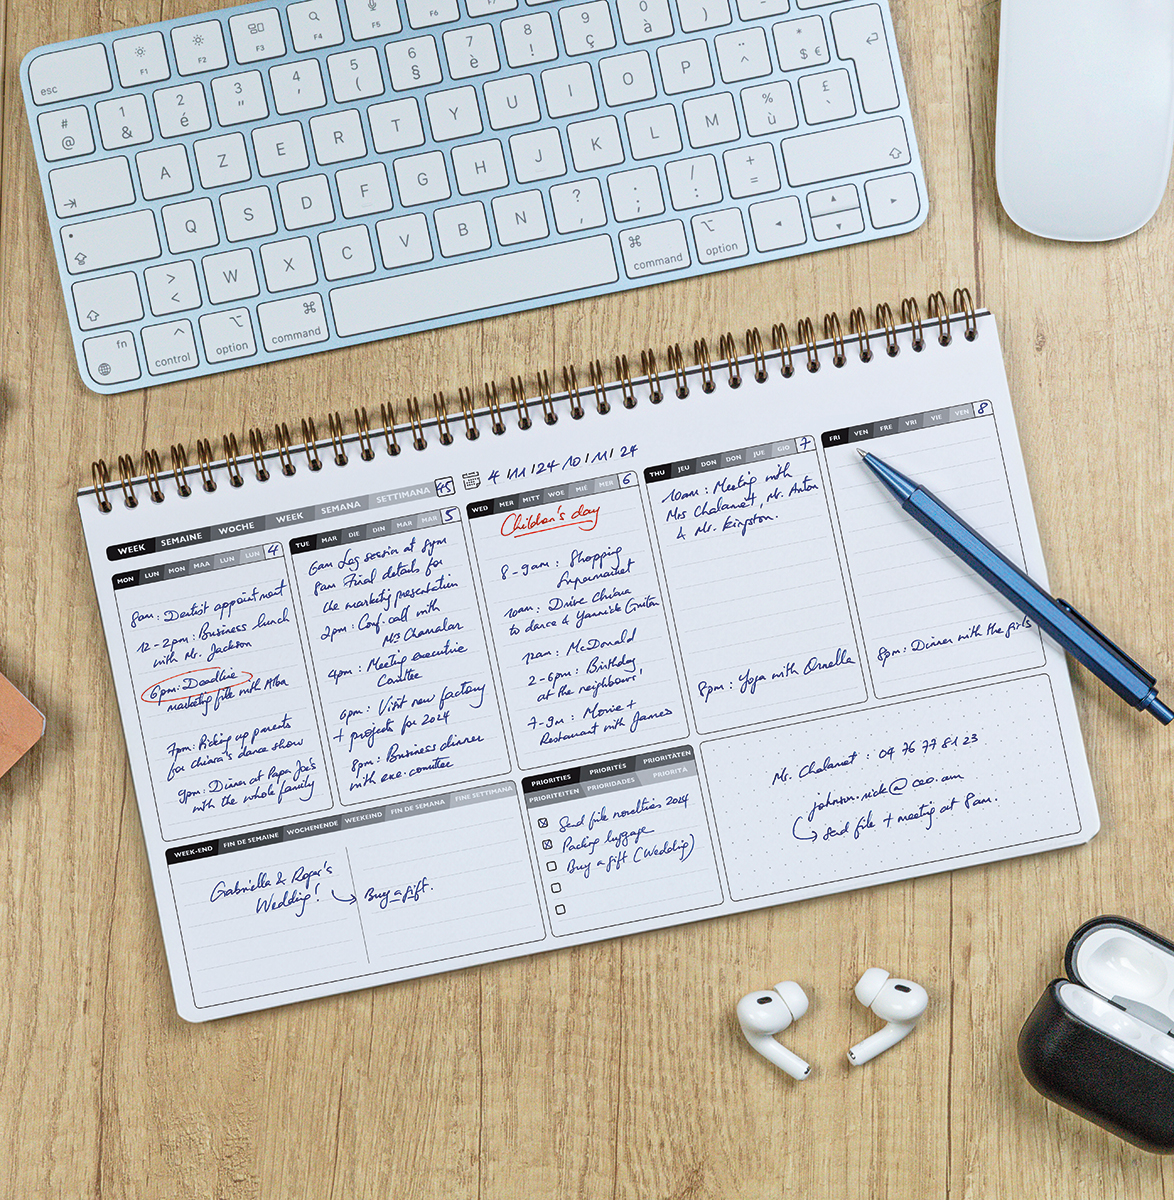 esc F1 F2 F3 F4 F5 F6 F7
# @ 1 & 2 é 3 " 4 ' 5 ( 6 § 7 è 8 ! 9 ç 0 à ) - * $ €
A Z E R T Y U I O P ¨ ^
Q S D F G H J K L M % ù £ `
> < W X C V B N ? , . ; / : + =
fn control option command command option
WEEK SEMAINE WOCHE WEEK SEMANA SETTIMANA 45
4/11/24 10/11/24
MON LUN MON MAA LUN LUN 4
8am: Dentist appointment
12-2pm: Business lunch
with Mr. Jackson
6pm: Deadline
marketing file with Alba
7pm: Picking up parents
for chiara's dance show
9pm: Dinner at Papa Joe's
with the whole family
TUE MAR DIE DIN MAR MAR 5
6am Leg session at gym
8am Final details for
the marketing presentation
2pm: Conf. call with
4pm: Meeting executive
Comittee
6pm: Visit new factory
+ projects for 2024
8pm: Business dinner
with exe. comittee
WED MER MITT WOE MIE MER 6
Children's day
8-9am: Shopping
Supermarket
10am: Drive Chiara
to dance & Yannick Guitar
12am: McDonald
2-6pm: Birthday
at the neighbours'
7-9pm: Movie +
Restaurant with James
THU JEU DON DON JUE GIO 7
10am: Meeting with
Mrs Chalamet, Mr. Anton
& Mr. Kingston.
8pm: Yoga with Ornella
FRI VEN FRE VRI VIE VEN 8
8pm: Dinner with the girls
WEEK-END FIN DE SEMAINE WOCHENENDE WEEKEIND FIN DE SEMANA FINE SETTIMANA
Gabriella & Roger's
Wedding!
Buy a gift.
PRIORITIES PRIORITÉS PRIORITÄTEN
PRIORITEITEN PRIORIDADES PRIORITÀ
Send file novelties 2024
Packing luggage
Buy a gift (Wedding)
Mr. Chalamet : 04 76 77 81 23
johnson.nick@ceo.am
send file + meeting at 8am.